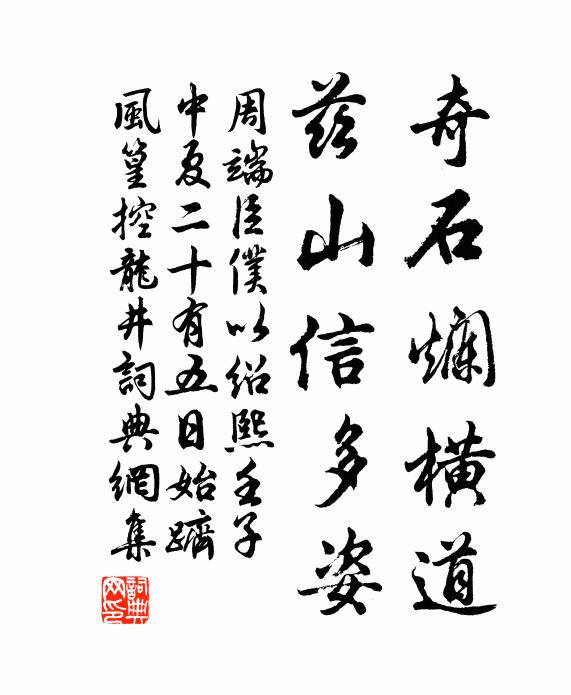 奇石爛橫道
茲山信多姿
周端臣僕以紹熙壬子
中夏二十有五日始躋
風篁控龍井詞典網集
詞典網印